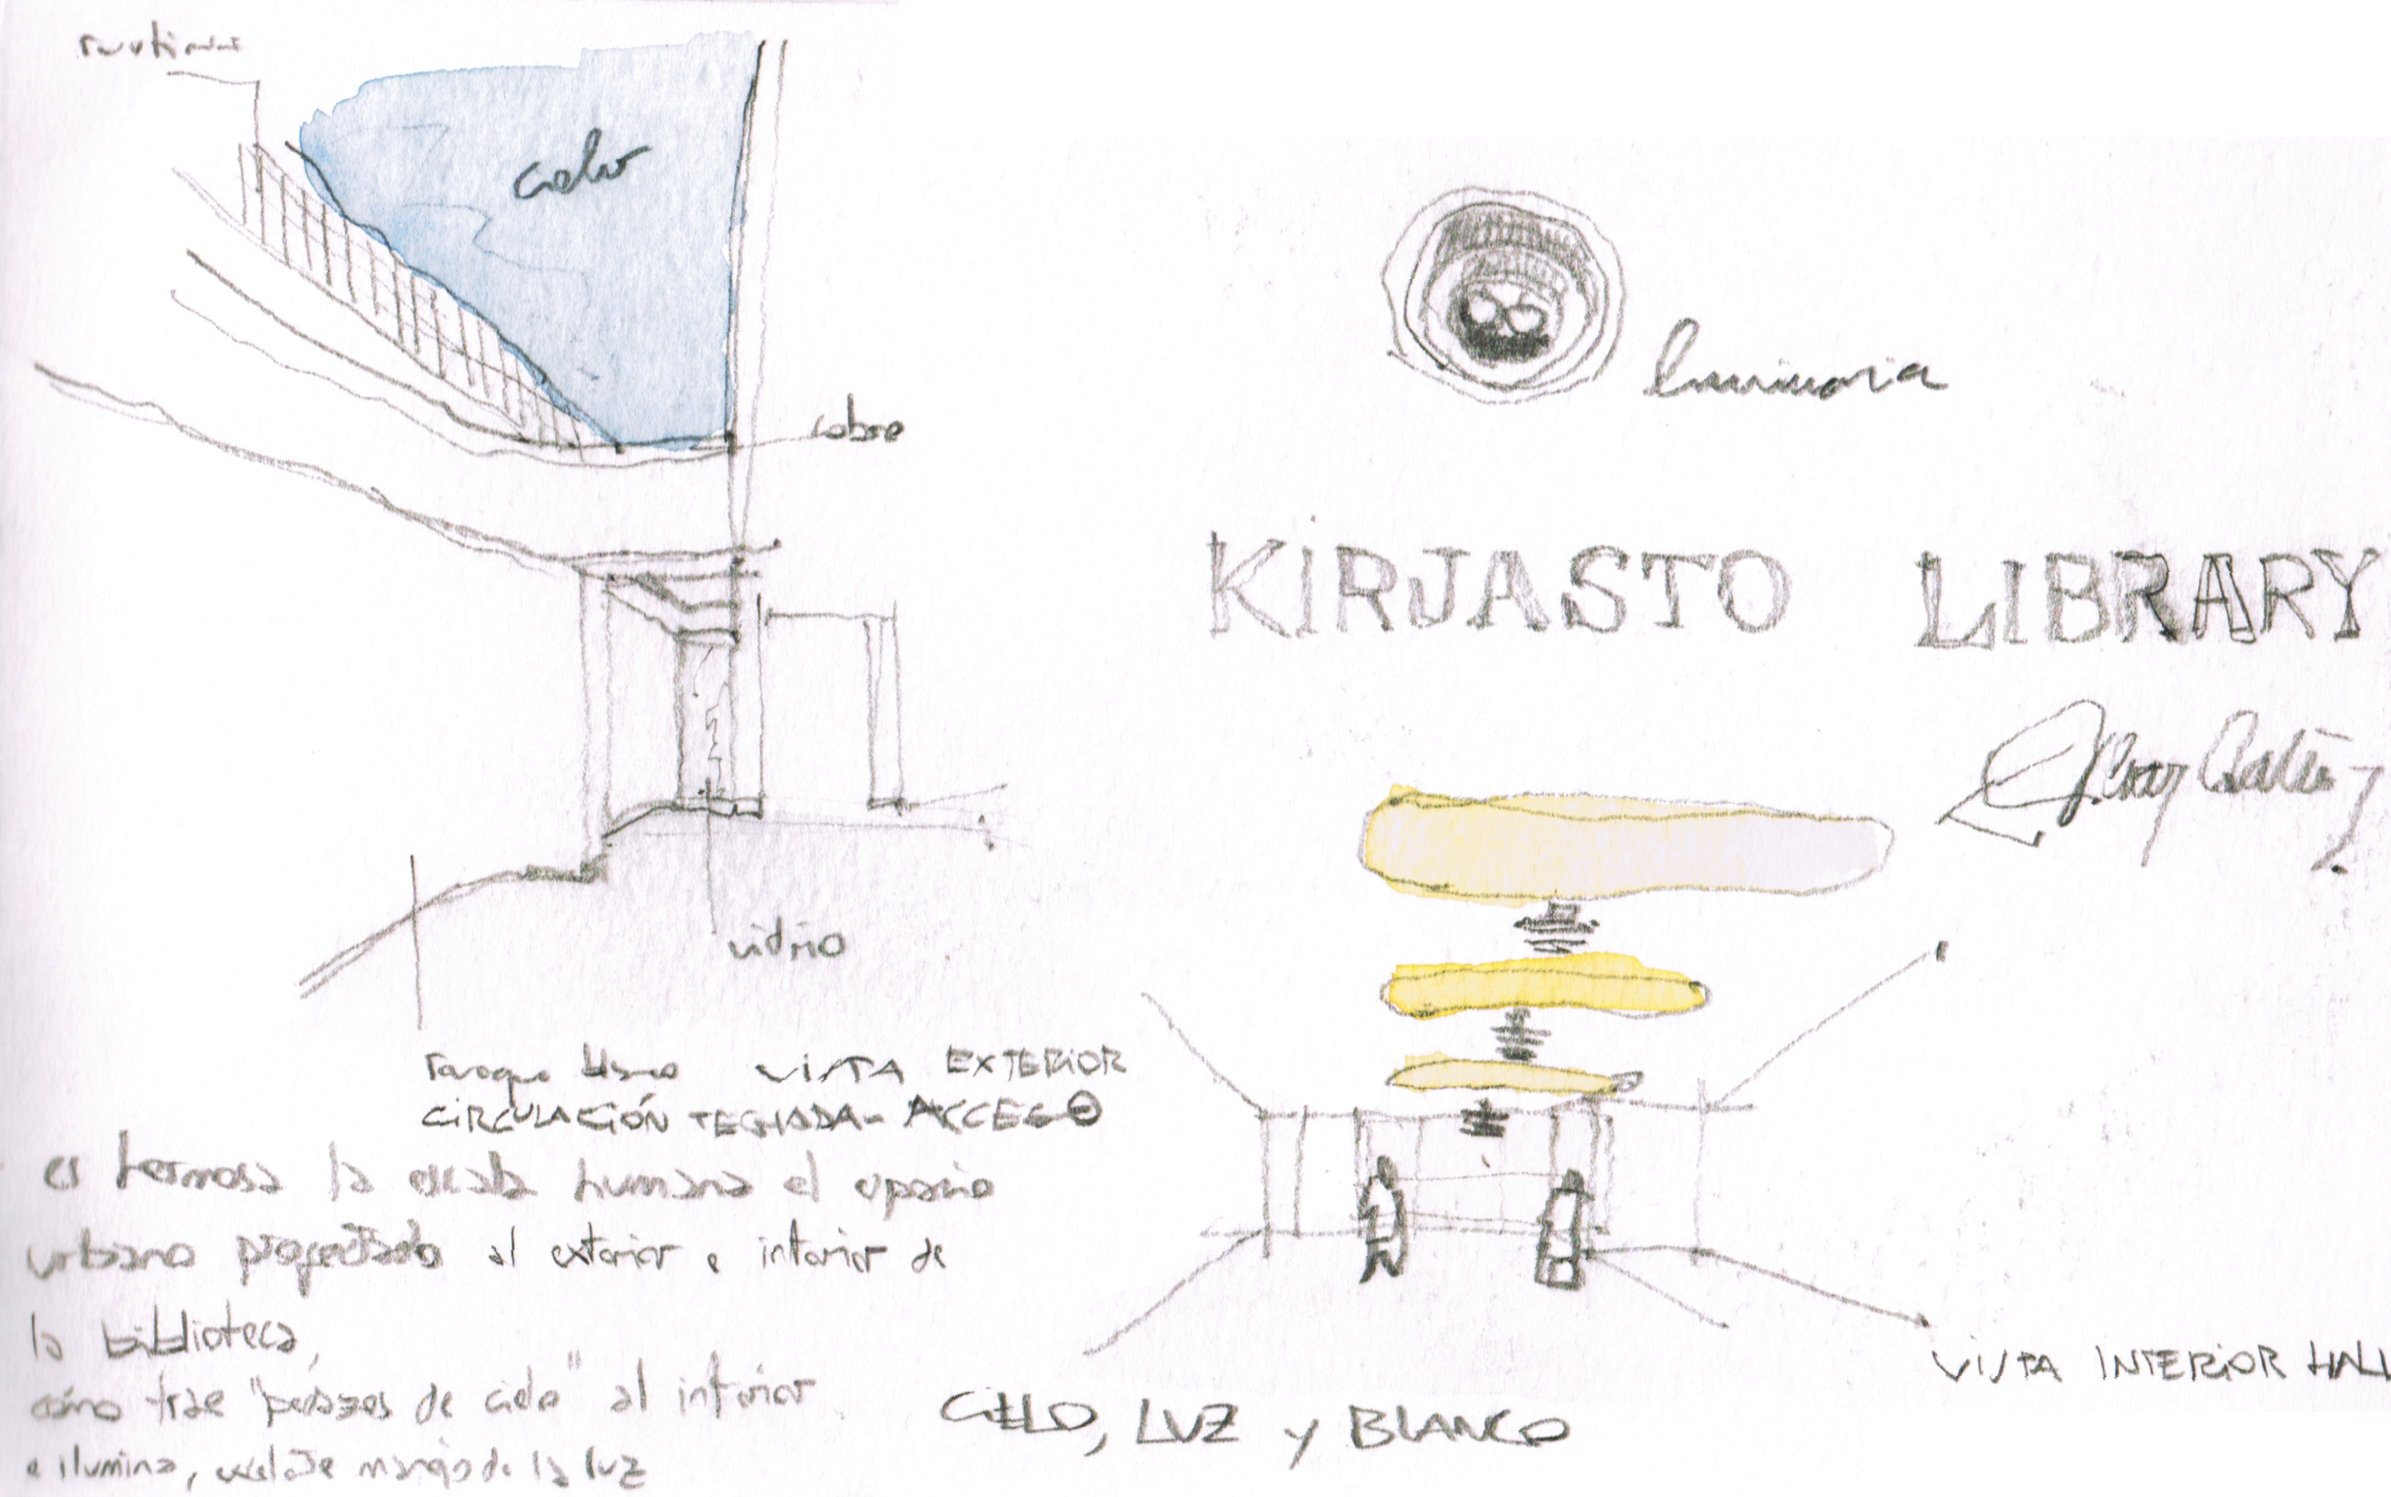 cielo
cobre
luminaria
KIRJASTO LIBRARY
vidrio
blanco VISTA EXTERIOR
CIRCULACIÓN TECHADA - ACCESO
es hermosa la escala humana el espacio
urbano proyectado al exterior e interior de
la biblioteca,
cómo trae "pedazos de cielo" al interior
e ilumina, excelente manejo de la luz
CIELO, LUZ Y BLANCO
VISTA INTERIOR HALL